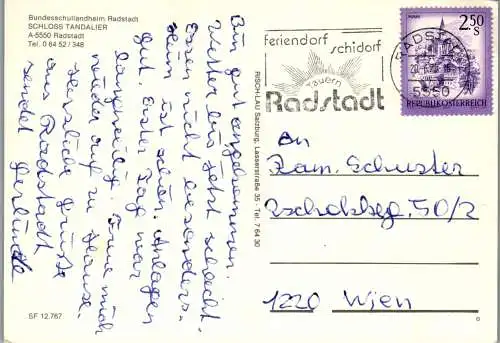 Bundesschullandheim Radstadt
SCHLOSS TANDALIER
A-5550 Radstadt
Tel. 0 64 52 / 348
Bin gut angekommen.
Wetter bis jetzt schlecht.
Essen nicht besonders.
Heim ist schön. Anlagen
gut. Erster Tag war
langweilig. Freue mich
wieder auf zu Hause.
Herzliche Grüsse
aus Radstadt
sendet Gerlinde
SF 12.767
RISCH-LAU Salzburg, Lasserstraße 35 - Tel. 7 64 30
feriendorf
schidorf
Tauern
Radstadt
RADSTADT
5550
2.50
S
REPUBLIK ÖSTERREICH
An
Fam. Schuster
50/2
1220 Wien